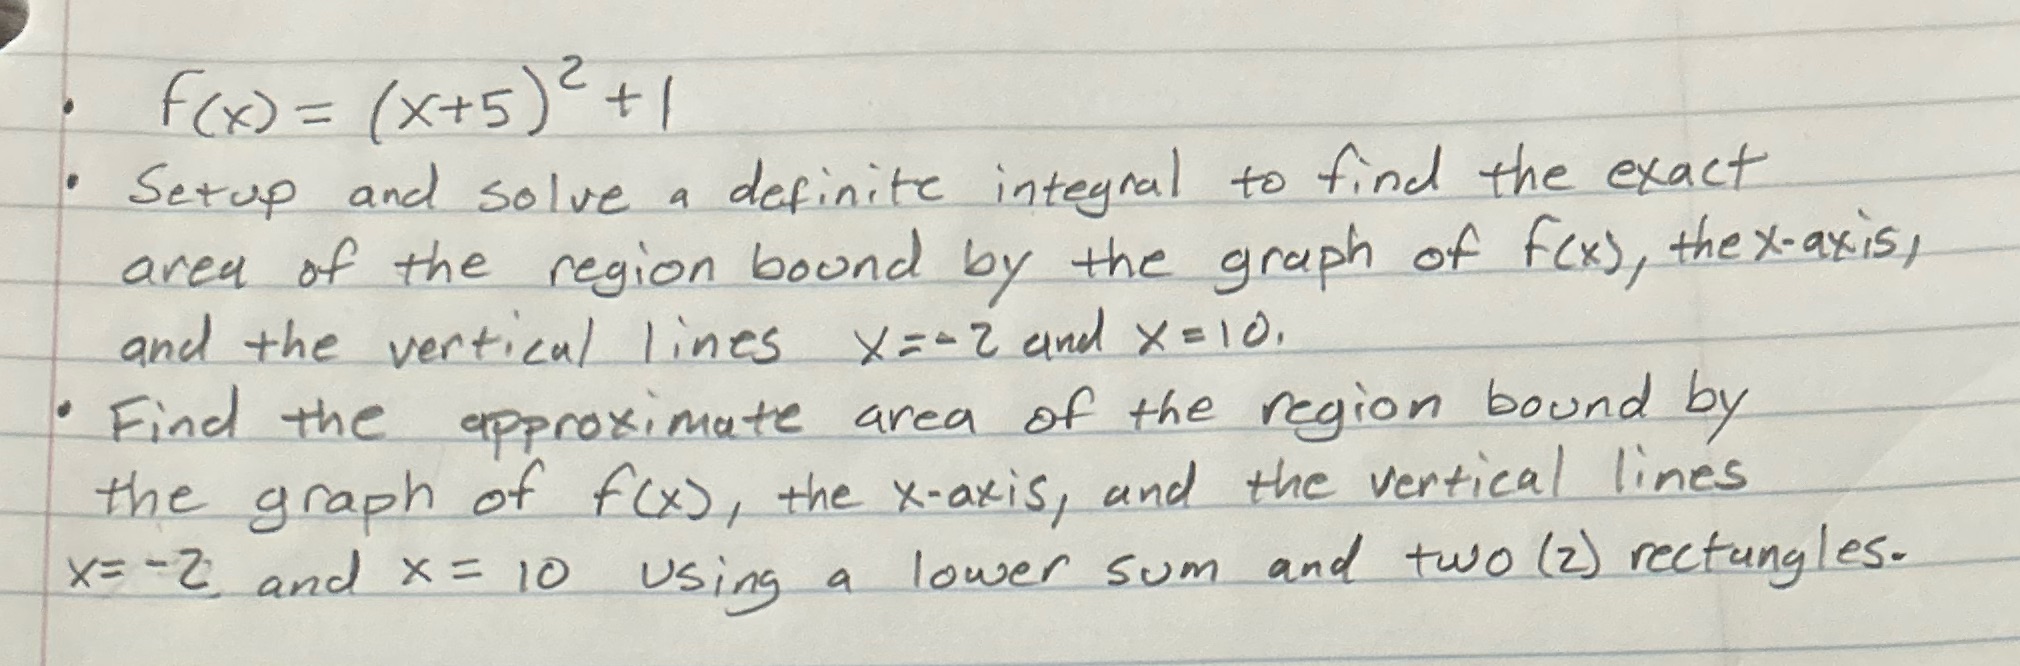 • f(x) = (x+5)² + 1
• Setup and solve a definite integral to find the exact
area of the region bound by the graph of f(x), the x-axis,
and the vertical lines x=-2 and x=10.
• Find the approximate area of the region bound by
the graph of f(x), the x-axis, and the vertical lines
x=-2 and x=10 using a lower sum and two (2) rectangles.